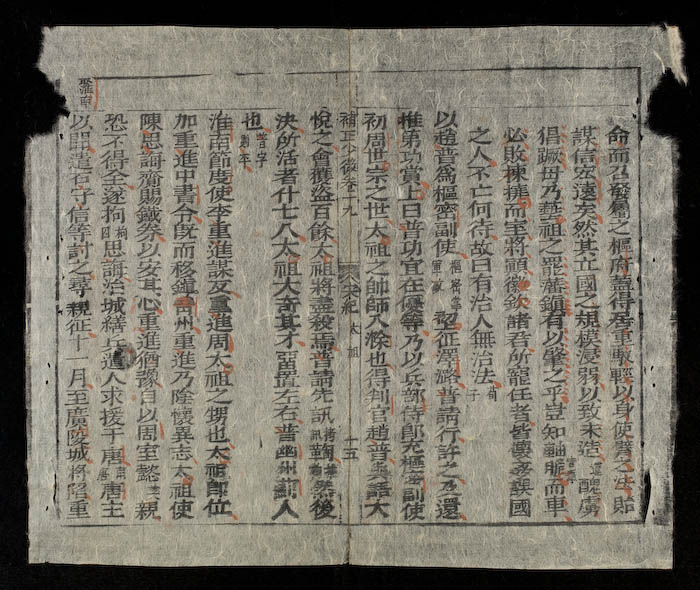 命而召發屬之樞府盡得居重馭輕以身使臂之法貽
謀信宏遠矣然其立國之規模浸弱以致末造醜虜
猖蹶毋乃藝祖之罷藩鎮有以肇之乎豈知軸脆而車
必敗棟撓而至將顛徽欽諸君所寵任者皆誤國
之人不亡何待故曰有治人無治法荀子
以趙普爲樞密副使初征澤潞普請行許之及還
推第功賞上曰普功宜在優等乃以兵部侍郎充樞密副使
初周世宗之世太祖之帥師入滁也得判官趙普與語大
補正少微卷十九 宋紀 太祖 十五
悅之會獲盜百餘太祖將盡殺焉普請先訊鞫然後
決所活者什七八太祖大奇其才留置左右普幽州薊人
也普字則平
淮南節度使李重進謀反重進周太祖之甥也太祖即位
加重進中書令旣而移鎭青州重進乃陰懷異志太祖使
陳思誨齎賜鐵券以安其心重進猶豫自以周室懿親
恐不得全遂拘思誨治城繕兵遣人求援于南唐唐主
以聞遣石守信等討之尋親征十一月至廣陵城將陷重